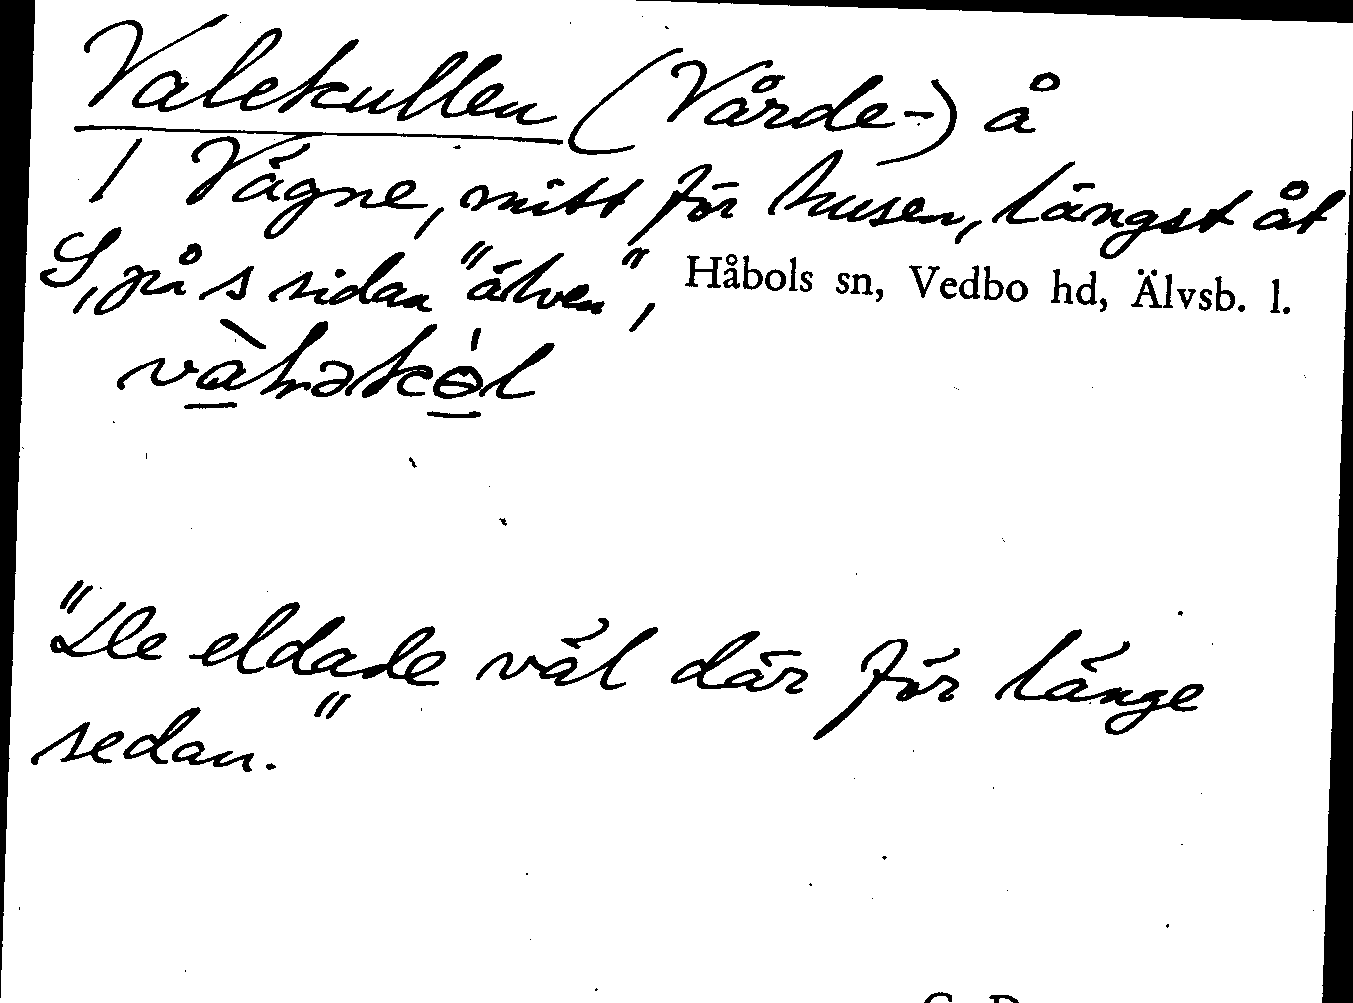 Valekullen (Vårde-) å
1 Vägne, mitt för husen, längst åt
S, på s sidan "älven", Håbols sn, Vedbo hd, Älvsb. l.
"De eldade väl där för länge
sedan."